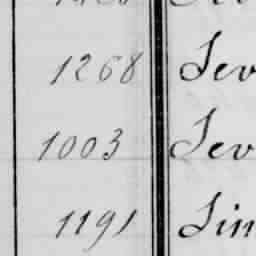 1268 Sev
1003 Sev
1191 Sin